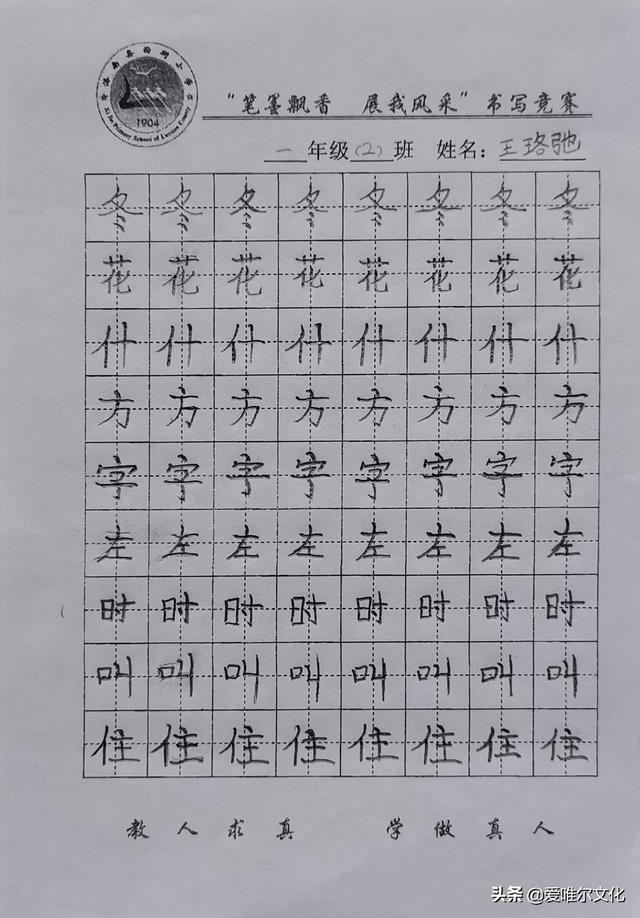 1904
"笔墨飘香 展我风采"书写竞赛
一年级(2)班 姓名:王珞弛
冬冬冬冬冬冬冬冬
花花花花花花花花
什什什什什什什什
方方方方方方方方
字字字字字字字字
左左左左左左左左
时时时时时时时时
叫叫叫叫叫叫叫叫
住住住住住住住住
教人求真 学做真人
头条 @爱唯尔文化